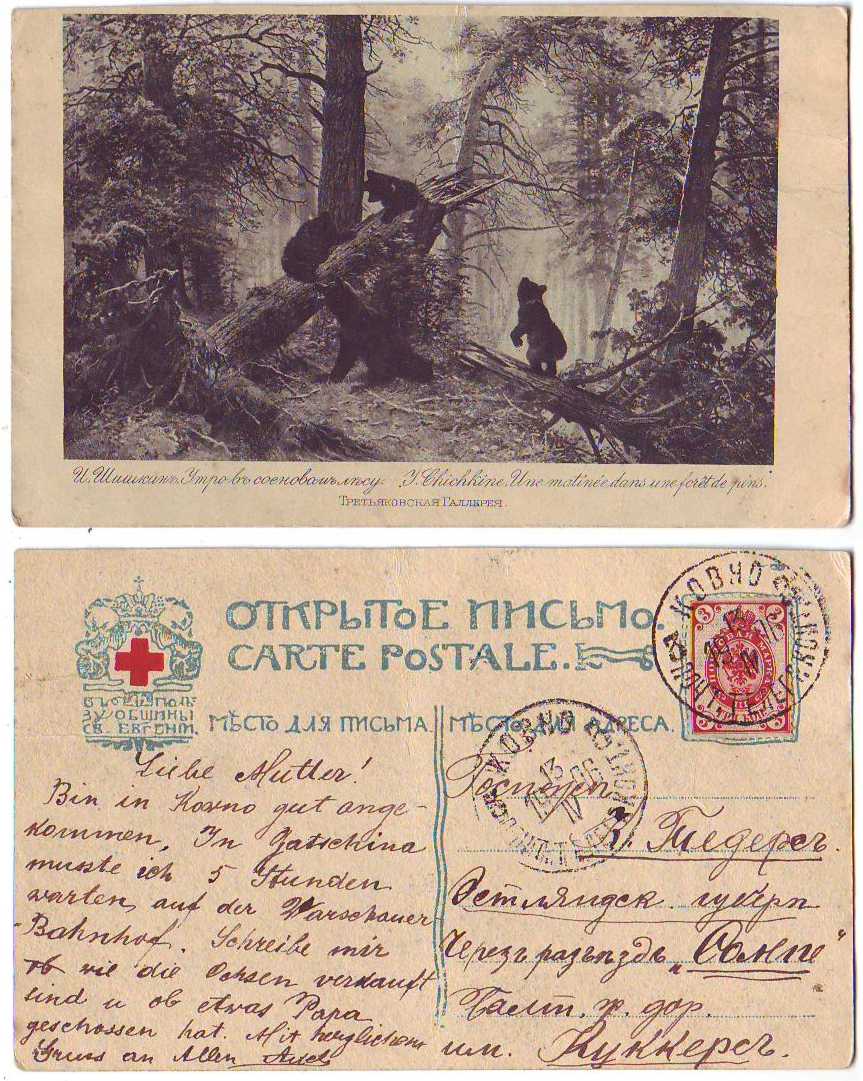 И. Шишкинъ. Утро въ сосновомъ лѣсу. J. Chichkine. Une matinée dans une forêt de pins.
ТРЕТЬЯКОВСКАЯ ГАЛЛЕРЕЯ.
ОТКРЫТОЕ ПИСЬМО.
CARTE POSTALE.
ВЪ ПОЛЬ
ЗУ ОБЩИНЫ
СВ. ЕВГЕНІИ.
МѢСТО ДЛЯ ПИСЬМА.
МѢСТО ДЛЯ АДРЕСА.
3 3
КОВНО
13 IV
КОВНО
13
1906
IV
Liebe Mutter!
Bin in Kovno gut ange-
kommen. In Gatschina
musste ich 5 Stunden
warten auf der Warschauer
Bahnhof. Schreibe mir
wie die Ochsen verkauft
sind u ob etwas Papa
geschossen hat. Mit herzlichem
Gruss an Allen
Госпожѣ
Тедеръ.
Эстляндск. губерн
Черезъ разъѣздъ „Сомпе"
Балт. ж. дор.
им. Куккерсъ.